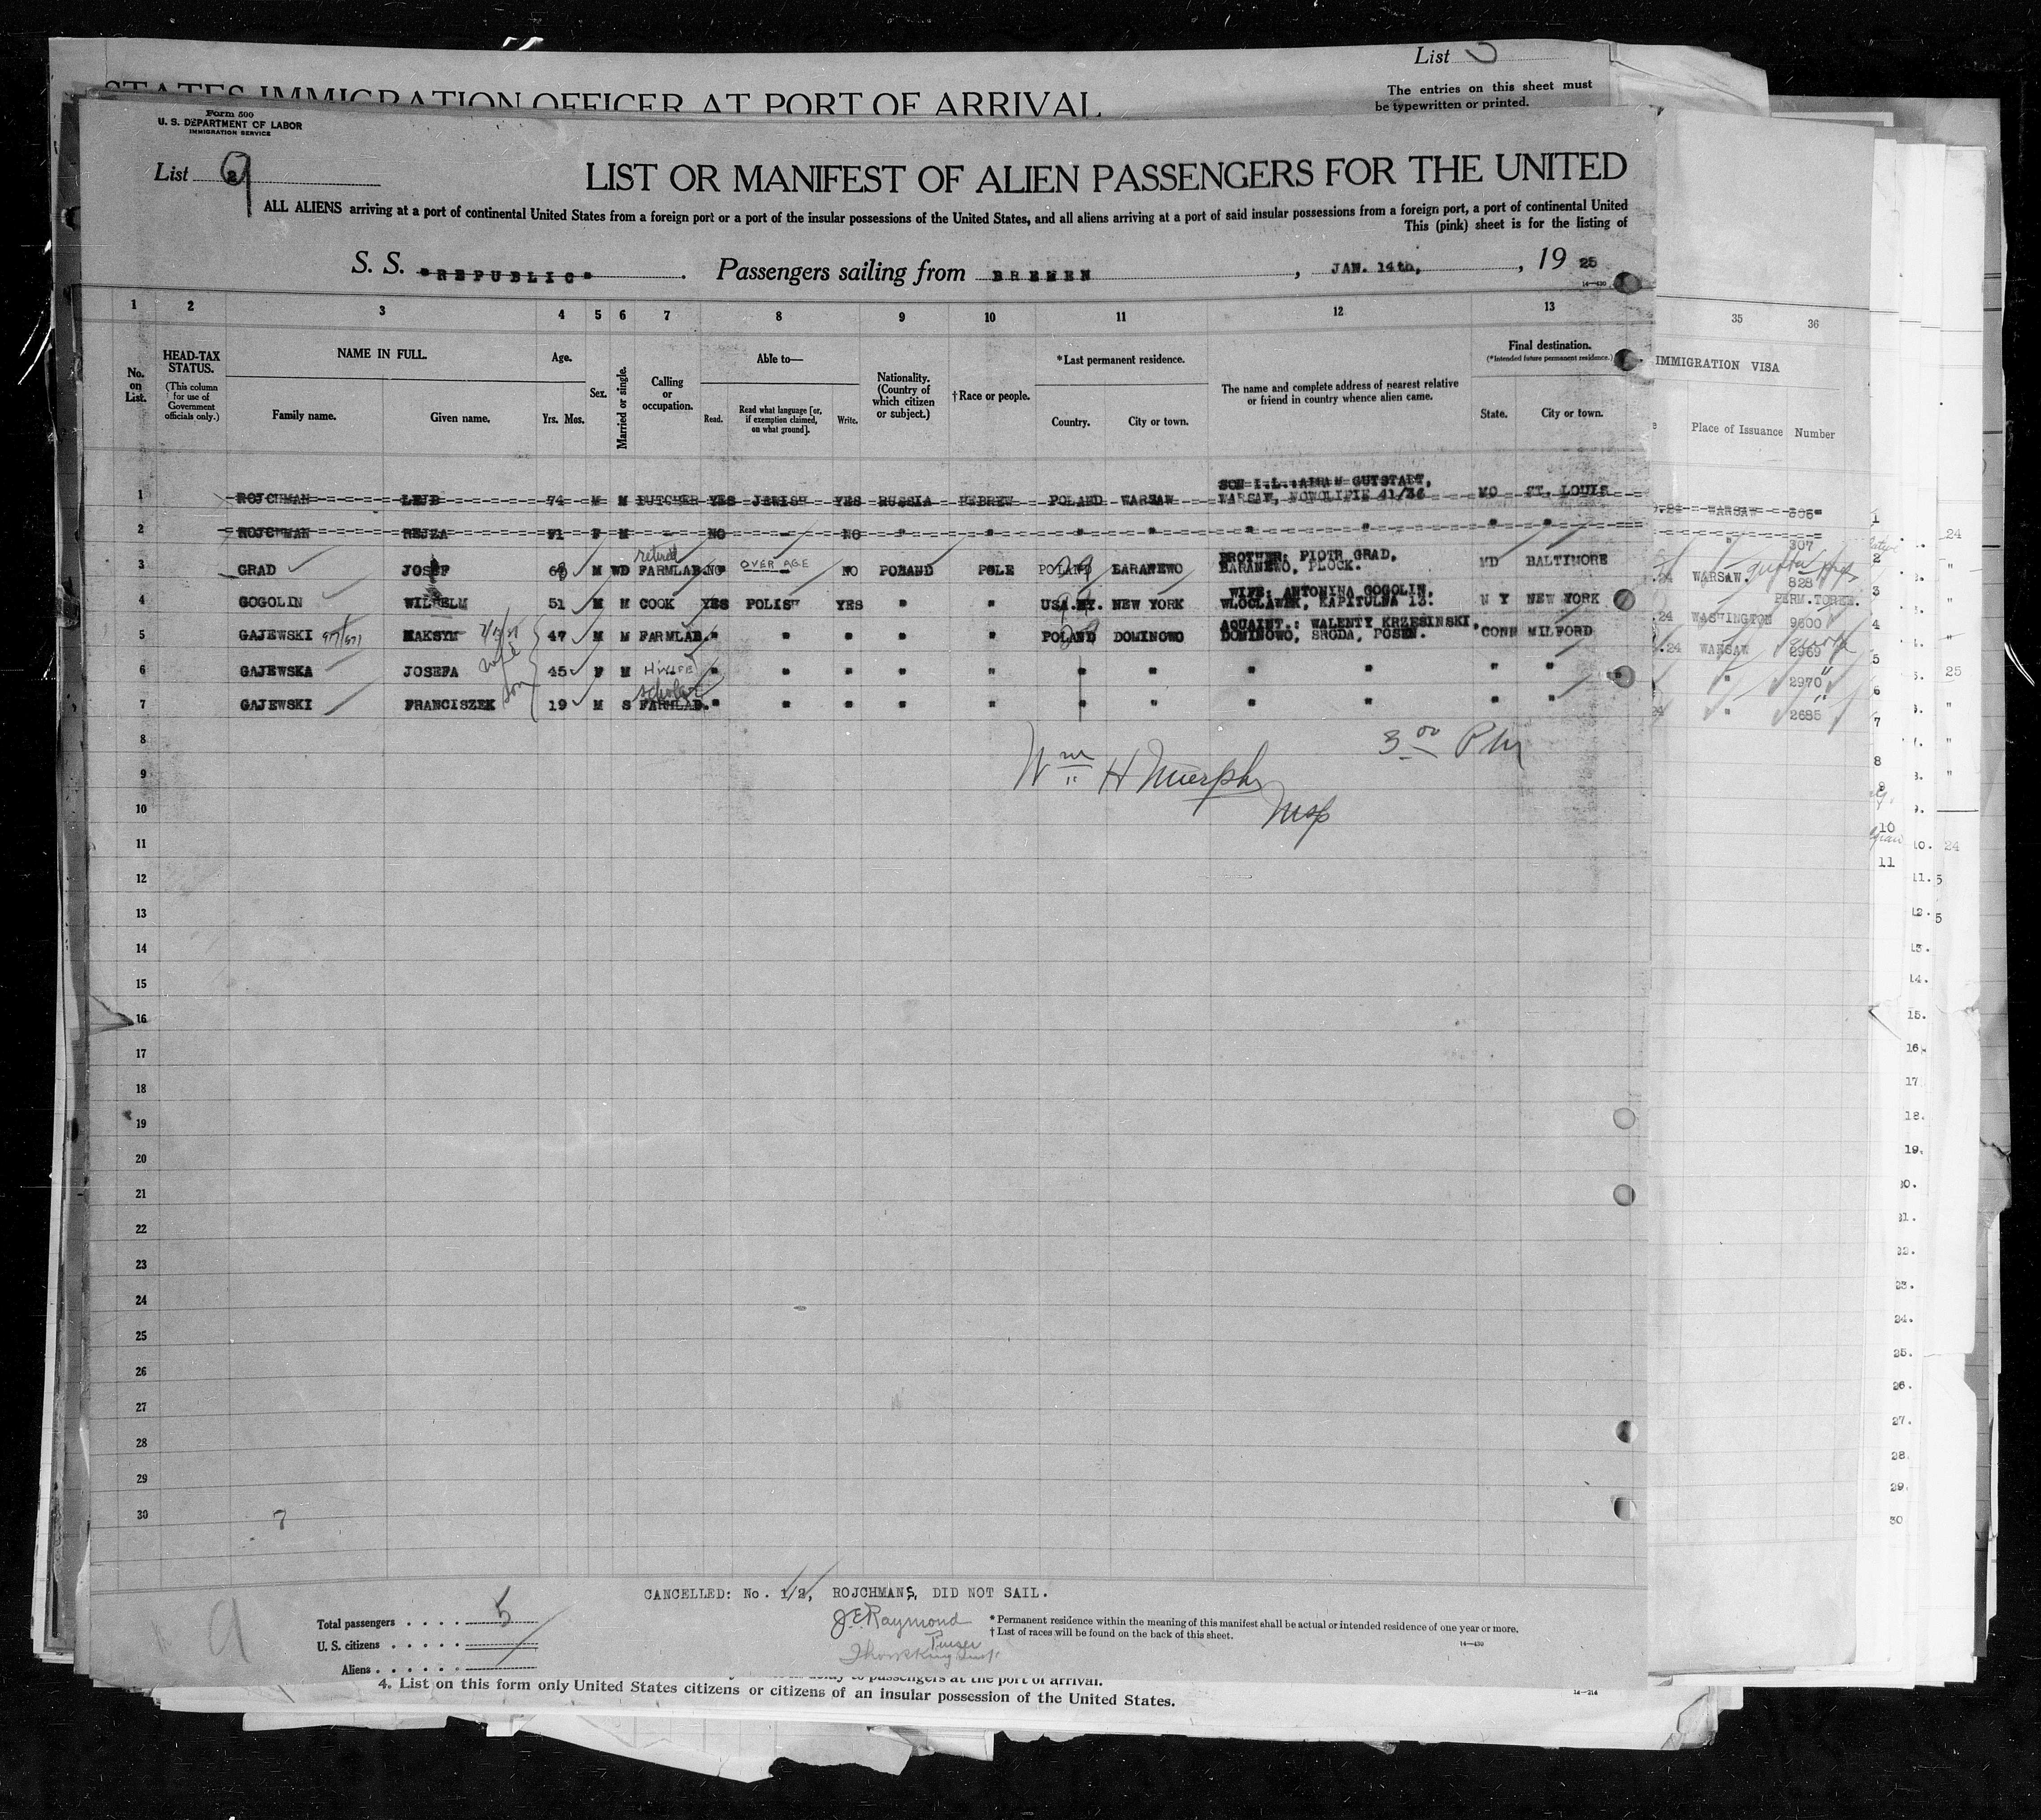 List
STATES IMMIGRATION OFFICER AT PORT OF ARRIVAL
The entries on this sheet must
be typewritten or printed.
Form 500
U. S. DEPARTMENT OF LABOR
IMMIGRATION SERVICE
List 9
LIST OR MANIFEST OF ALIEN PASSENGERS FOR THE UNITED
ALL ALIENS arriving at a port of continental United States from a foreign port or a port of the insular possessions of the United States, and all aliens arriving at a port of said insular possessions from a foreign port, a port of continental United
This (pink) sheet is for the listing of
S. S. "REPUBLIC" . Passengers sailing from BREMEN , JAN. 14th, , 19 25
14—430
1 2 3 4 5 6 7 8 9 10 11 12 13 35 36
No. on List.
HEAD-TAX STATUS.
(This column for use of Government officials only.)
NAME IN FULL.
Family name. Given name.
Age.
Yrs. Mos.
Sex.
Married or single.
Calling or occupation.
Able to—
Read. Read what language [or, if exemption claimed, on what ground]. Write.
Nationality. (Country of which citizen or subject.)
† Race or people.
*Last permanent residence.
Country. City or town.
The name and complete address of nearest relative or friend in country whence alien came.
Final destination.
(*Intended future permanent residence.)
State. City or town.
IMMIGRATION VISA
Place of Issuance Number
SON I.L.: ABRAM GUTSTADT,
1 ROJCHMAN LEJB 74 M M BUTCHER YES JEWISH YES RUSSIA HEBREW POLAND WARSAW WARSAW, NOWOLIPIE 41/36 MO ST. LOUIS WARSAW 306
2 ROJCHMAN REJZA 71 F M - NO - NO " " " " " " " " " 307
retired
BROTHER: PIOTR GRAD,
3 GRAD JOSEF M WD FARMLAB. NO OVER AGE NO POLAND POLE POLAND BARANEWO BARANEWO, PLOCK. MD BALTIMORE .24 WARSAW. 828
WIFE: ANTONINA GOGOLIN,
PERM. TOREE.
4 GOGOLIN WILHELM 51 M M COOK YES POLISH YES " " USA.NY. NEW YORK WLOCLAWEK, KAPITULNA 13. N Y NEW YORK .24 WASHINGTON 9600
AQUAINT.: WALENTY KRZESINSKI,
5 GAJEWSKI MAKSYM 47 M M FARMLAB. " " " " " POLAND DOMINOWO DOMINOWO, SRODA, POSEN. CONN MILFORD .24 WARSAW 2969
wife
6 GAJEWSKA JOSEFA 45 F M H'WIFE " " " " " " " " " " " " 2970
son scholar
7 GAJEWSKI FRANCISZEK 19 M S FARMLAB. " " " " " " " " " " " 24 " 2685
8
Wm H Murphy
3 00 PM
9
Insp
10
11
12
13
14
15
16
17
18
19
20
21
22
23
24
25
26
27
28
29
30
7
CANCELLED: No. 1/2, ROJCHMANS, DID NOT SAIL.
9
Total passengers . . . . . 5
U. S. citizens . . . . .
Aliens . . . . . .
J.E. Raymond
Purser
* Permanent residence within the meaning of this manifest shall be actual or intended residence of one year or more.
† List of races will be found on the back of this sheet.
14—430
to passengers at the port of arrival.
4. List on this form only United States citizens or citizens of an insular possession of the United States.
14—214